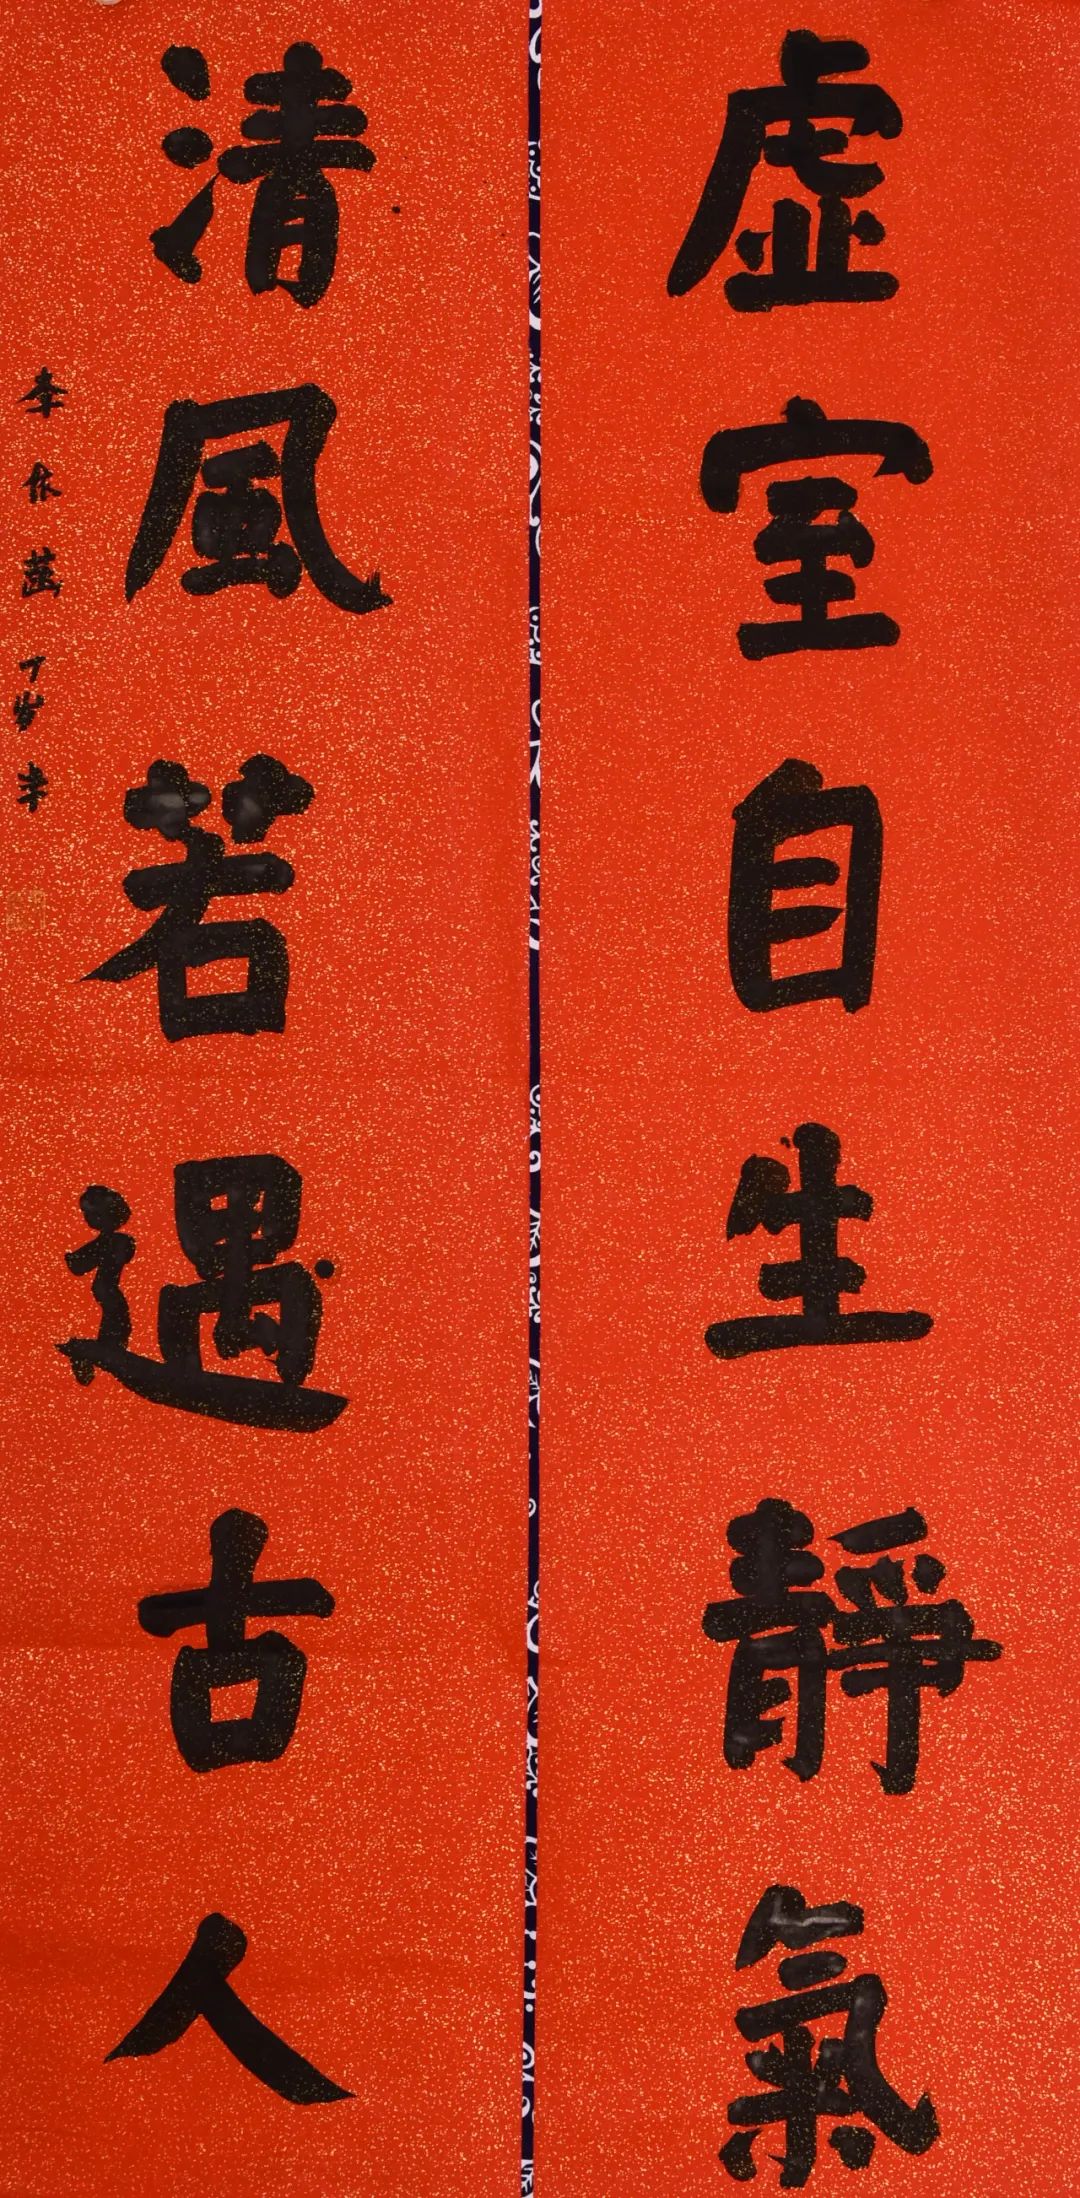 虚室自生靜氣
清風若遇古人
李依蓝丁岁书